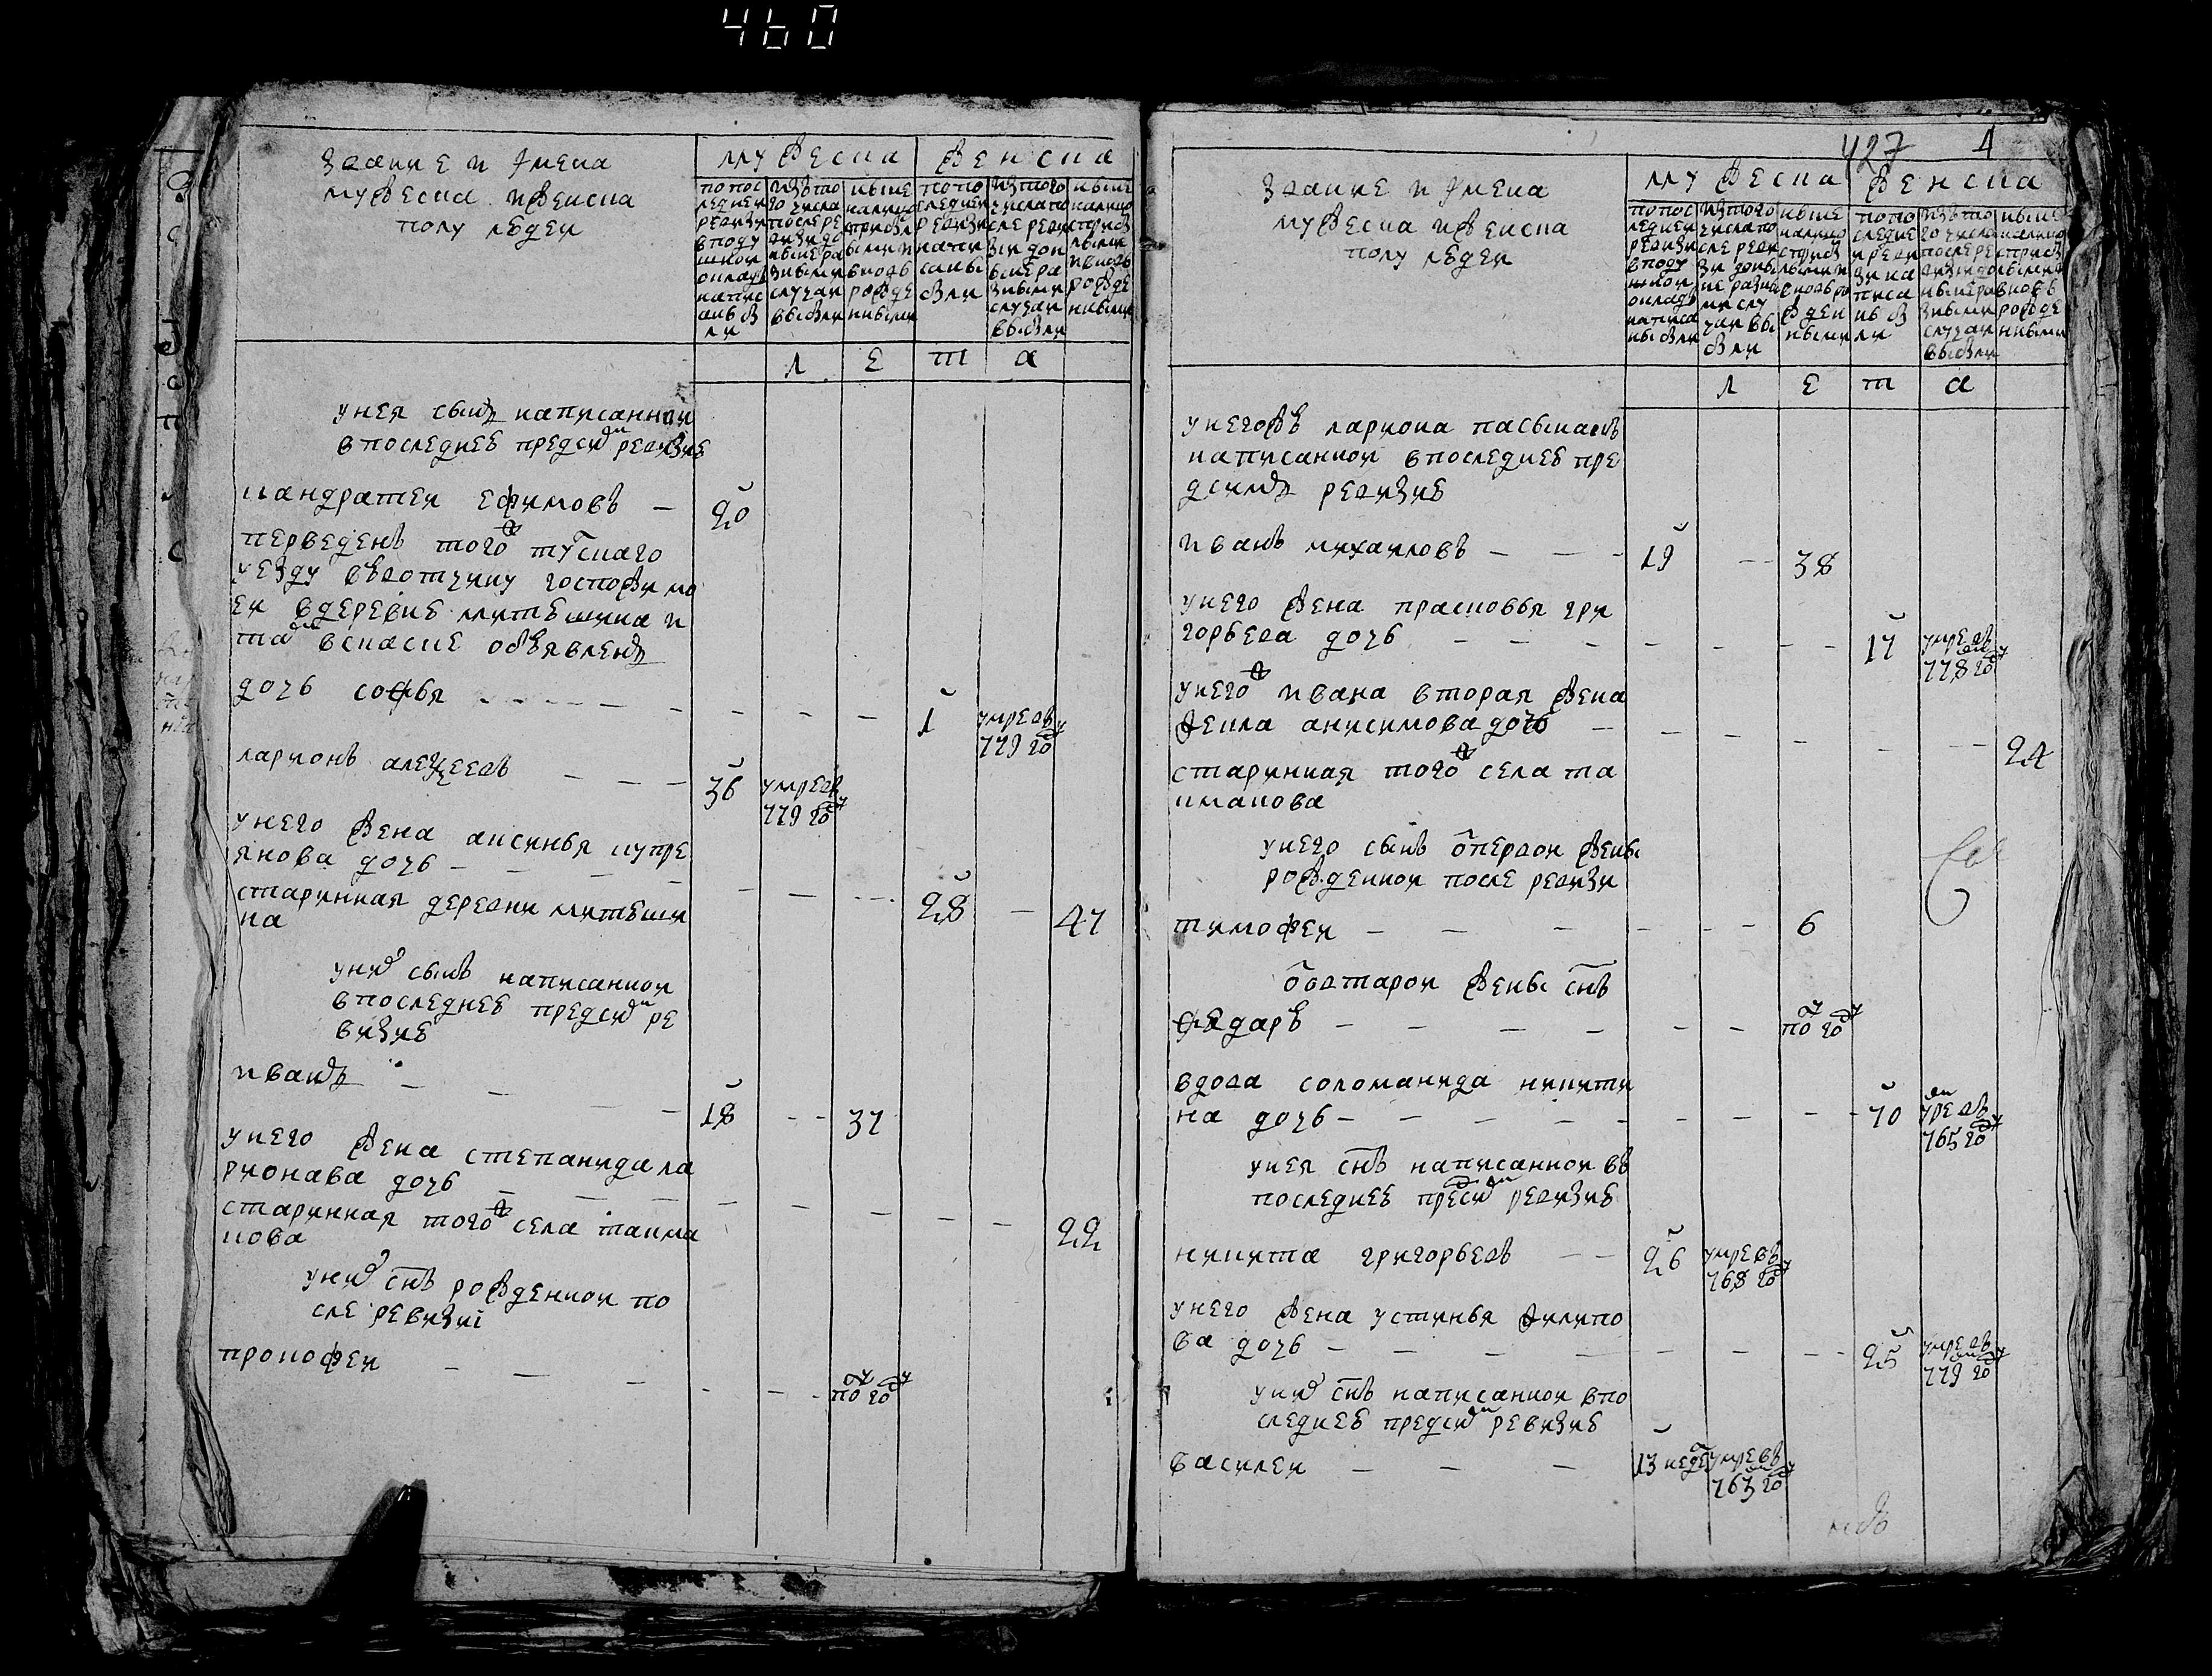 460
звание и имена
мужеска и женска
полу людеи
мужеска
женска
по пос
ледней
ревизи
в поду
шной
оклад
напис
аны б
ли
из то
го числа
после ре
визи до
ныне ра
зными
случаи
выбыли
ныне
налицо
с прибы
лыми и
вновь
рожде
ными
по по
следней
ревизи
напи
саны
были
из того
числа по
сле реви
зи до н
ыне ра
зными
случаи
выбыли
ныне
налицо
с прибы
лыми
и вновь
рожде
ными
л е т а
у нея сынъ написаннои
в последнеѣ пред сим ревизиѣ
кандратеи ефимовъ — 20
переведенъ того ж тускаго
уезду в вотчину госпожи мо
еи в деревнѣ митѣшкина и
там в скаске объявленъ
дочь софья — 1 умре въ
779 году
ларионъ алексеевъ — 36 умре въ
779 году
у него жена аксинья купре
янова дочь —
старинная деревни митѣшки
на 28 — 47
у них сынъ написаннои
в последнеѣ пред сим ре
визиѣ
иванъ — 18 — 37
у него жена степанида ла
рионава дочь —
старинная того ж села такма
кова 22
у них снъ рожденнои по
сле ревизиi
прокофеи — по году
427 4
звание и имена
мужеска и женска
полу людеи
мужеска
женска
по пос
ледней
ревизи
в поду
шной
окладъ
написа
ны были
из того
числа по
сле реви
зи до ны
не разны
ми слу
чаи вы
были
ныне
налицо
с прибы
лыми и
вновь ро
жден
ными
по по
следне
й реви
зи на
писа
ны б
ли
из то
го числа
после ре
визи до
ныне ра
зными
случаи
выбыли
ныне
налицо
с прибы
лыми и
вновь
рожде
ными
л е т а
у него жъ лариона пасынакъ
написаннои в последнеѣ пре
д симъ ревизиѣ
иванъ михаиловъ — 19 — 38
у него жена прасковья гри
горьева дочь — 17 умре въ
778 году
у него ж ивана вторая жена
ѳекла анисимова дочь —
старинная того ж села та 24
кмакова
у него сынъ от первои жены
рожденнои после ревизи
тимофеи — 6
от втарои жены снъ
фѣдаръ — по году
вдова соломанида никити
на дочь — 70 умре въ
765 году
у нея снъ написаннои въ
последнеѣ пред сим ревизиѣ
никита григорьевъ — 26 умре въ
768 году
у него жена устинья ѳилипо
ва дочь — 25 умре въ
779 году
у них снъ написаннои в по
следнеѣ пред сим ревизиѣ
василеи — 13 недел умре въ
763 году